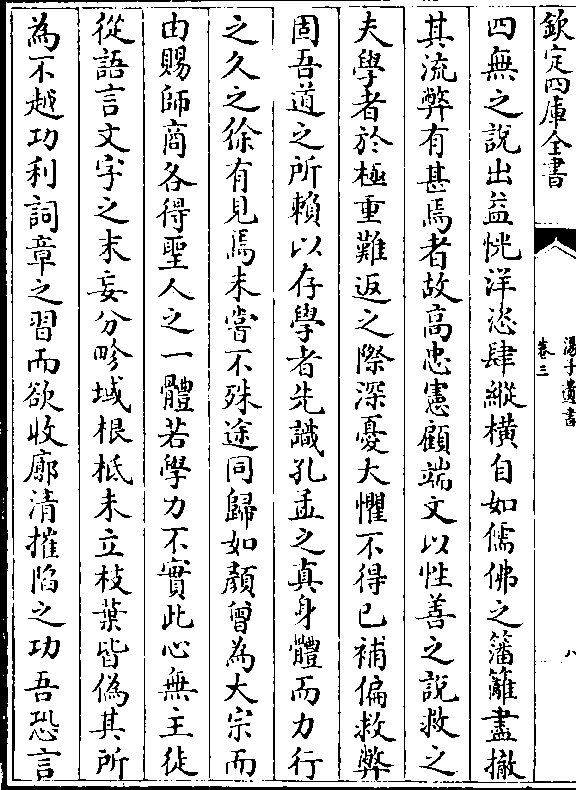 欽定四庫全書
湯子遺書
卷三
八
四無之說出益恍洋恣肆縱橫自如儒佛之籓籬盡撤
其流弊有甚焉者故高忠憲顧端文以性善之說救之
夫學者於極重難返之際深憂大懼不得已補偏救弊
固吾道之所賴以存學者先識孔孟之真身體而力行
之久之徐有見焉未嘗不殊途同歸如顏曾為大宗而
由賜師商各得聖人之一體若學力不實此心無主徒
從語言文字之末妄分畛域根柢未立枝葉皆偽其所
為不越功利詞章之習而欲收廓清摧陷之功吾恐言